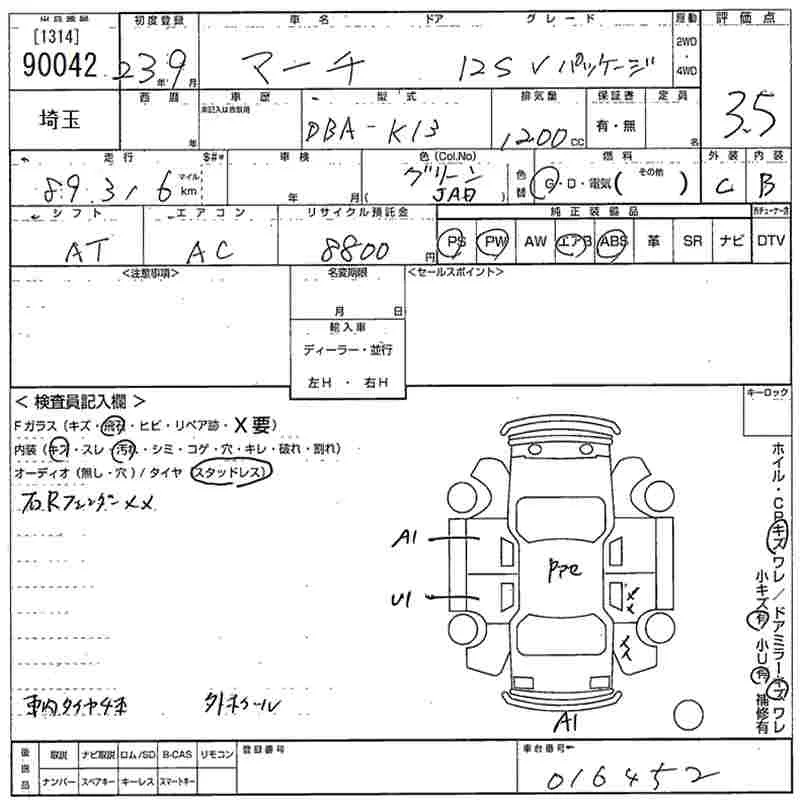 出品番号 初度登録 車名 ドア グレード 原動 評価点
[1314]
90042 23年9月 マーチ 12S V パッケージ 2WD・4WD
3.5
西暦 車歴 型式 排気量 保証書 定員
埼玉 年 未記入は自家用 DBA-K13 1200cc 有・無 名
走行 $#* 車検 色(Col.No) 燃料 外装 内装
89,316 マイル km 年 月( グリーン JAD ) 色替 G・D・電気( その他 ) C B
シフト エアコン リサイクル預託金 純正装備品
AT AC 8800円 PS PW AW エアB ABS 革 SR ナビ DTV
<注意事項> 名変期限 <セールスポイント>
月 日
輸入車
ディーラー・並行
左H・右H
<検査員記入欄> キーロック
Fガラス(キズ・飛石・ヒビ・リペア跡・X要)
内装(キズ・スレ・汚れ・シミ・コゲ・穴・キレ・破れ・割れ)
オーディオ(無し・穴)/タイヤ(スタッドレス)
右Rフェンダーメメ
A1
U1
A1
ホイル・CPキズワレ/ドアミラーキズワレ
小キズ有 小U有 補修有
車内タイヤ4本 外ホイール
後送品 取説 ナビ取説 ロム/SD B-CAS リモコン 登録番号 車台番号
ナンバー スペアキー キーレス スマートキー 016452